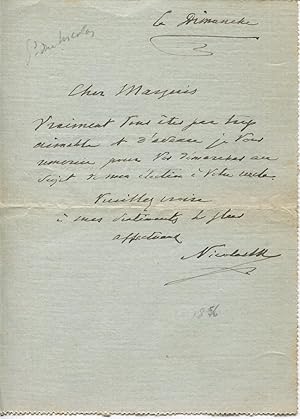 Ce Dimanche
Cher Marquis
Vraiment Vous êtes par trop
aimable et d'avance je Vous
remercie pour Vos démarches au
sujet de mon élection à Votre cercle.
Veuillez croire
à mes sentiments les plus
affectueux
Nicolas
1856